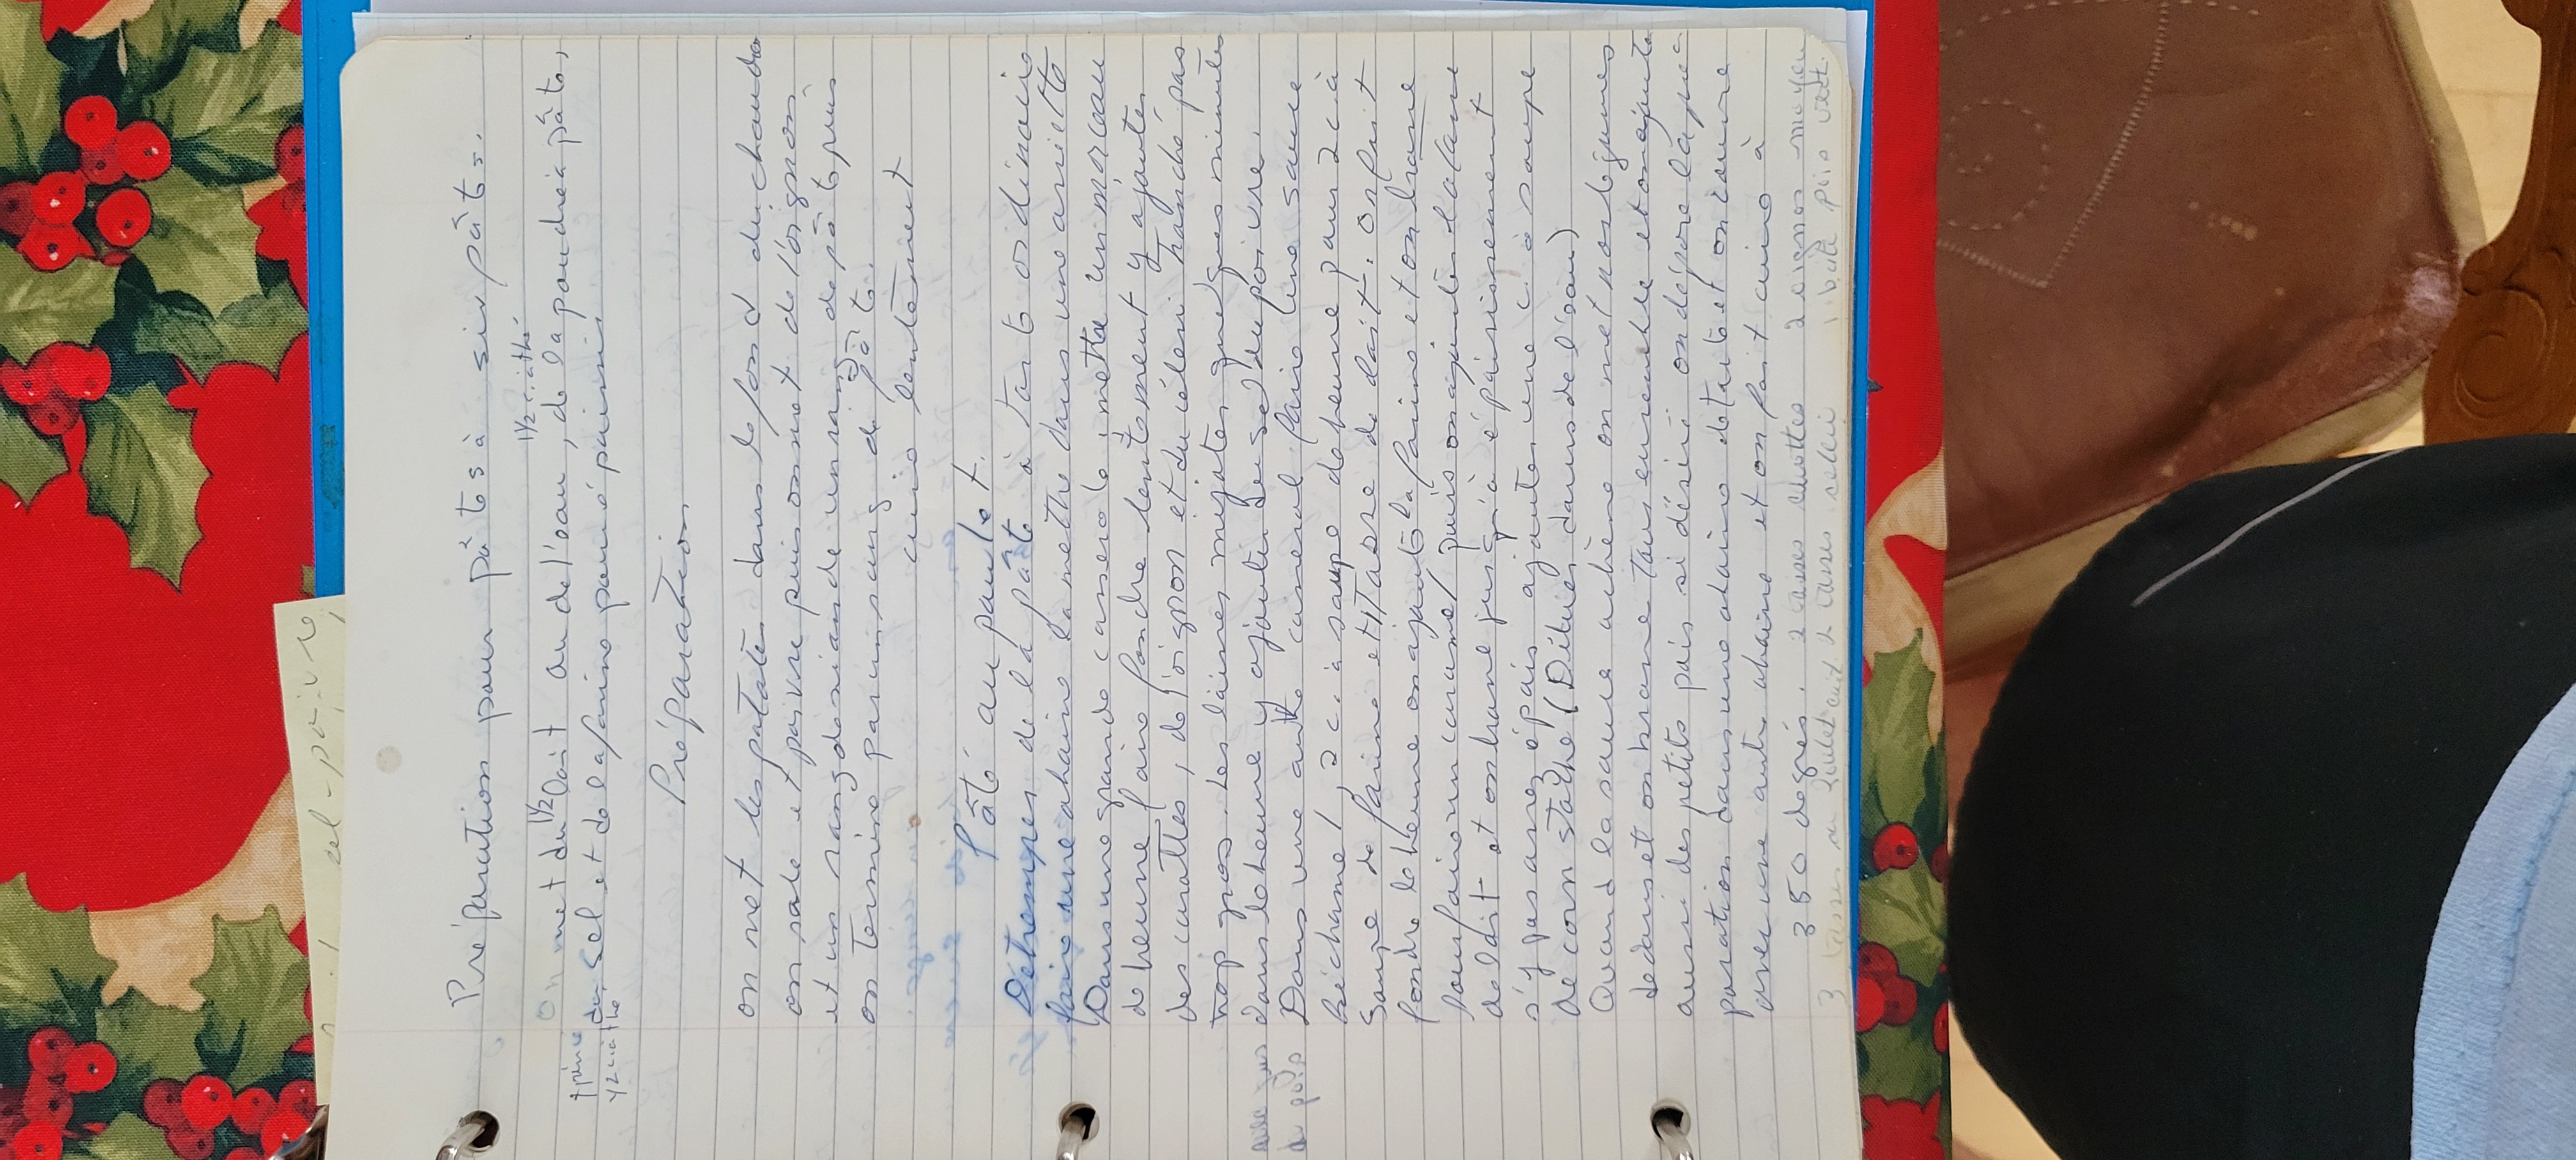 Préparation pour pâtes à six pâtes.
1 1/2 c. à thé
On met du 1/2 lait ou de l'eau, de la poudre à pâtes,
du sel et de la farine pour épaissis
1/2 c. à thé
Préparation
on met les patates dans le fond du chaudron
on sale et poivre puis on met de l'oignon
et un rang de viande un rang de pâte puis
on termine par un rang de pâte.
cuire lentement
Pâté au poulet.
Détremper de la pâte à tarte ordinaire
faire une abaisse la mettre dans une assiette
Dans une grande casserole, mettre un morceau
de beurre faire fondre lentement y ajouter
des carottes, de l'oignon et du céleri tranché pas
trop gros, les laisser mijoter quelques minutes
dans le beurre y ajouter du sel du poivre.
avec jus
de pois
Dans une autre casserole faire une sauce
béchamel, 2 c. à soupe de beurre pour 2 c. à
soupe de farine et 1 tasse de lait. On fait
fondre le beurre on ajoute la farine et on brasse
pour faire un caramel puis on ajoute la tasse
de lait et on brasse jusqu'à épaississement
s'y pas assez épais ajouter une c. à soupe
de corn starch (Diluer dans de l'eau)
Quand la sauce achève on met nos légumes
dedans et on brasse tous ensemble et on ajoute
aussi des petits pois si désiré on dépose la pré-
paration dans une abaisse de tarte et on couvre
avec une autre abaisse et on fait cuire à
350 degrés. 2 tasses carottes 2 oignons moyen
3 tasses de poulet cuit 2 tasses céleri 1 boîte pois vert.
sel-poivre,